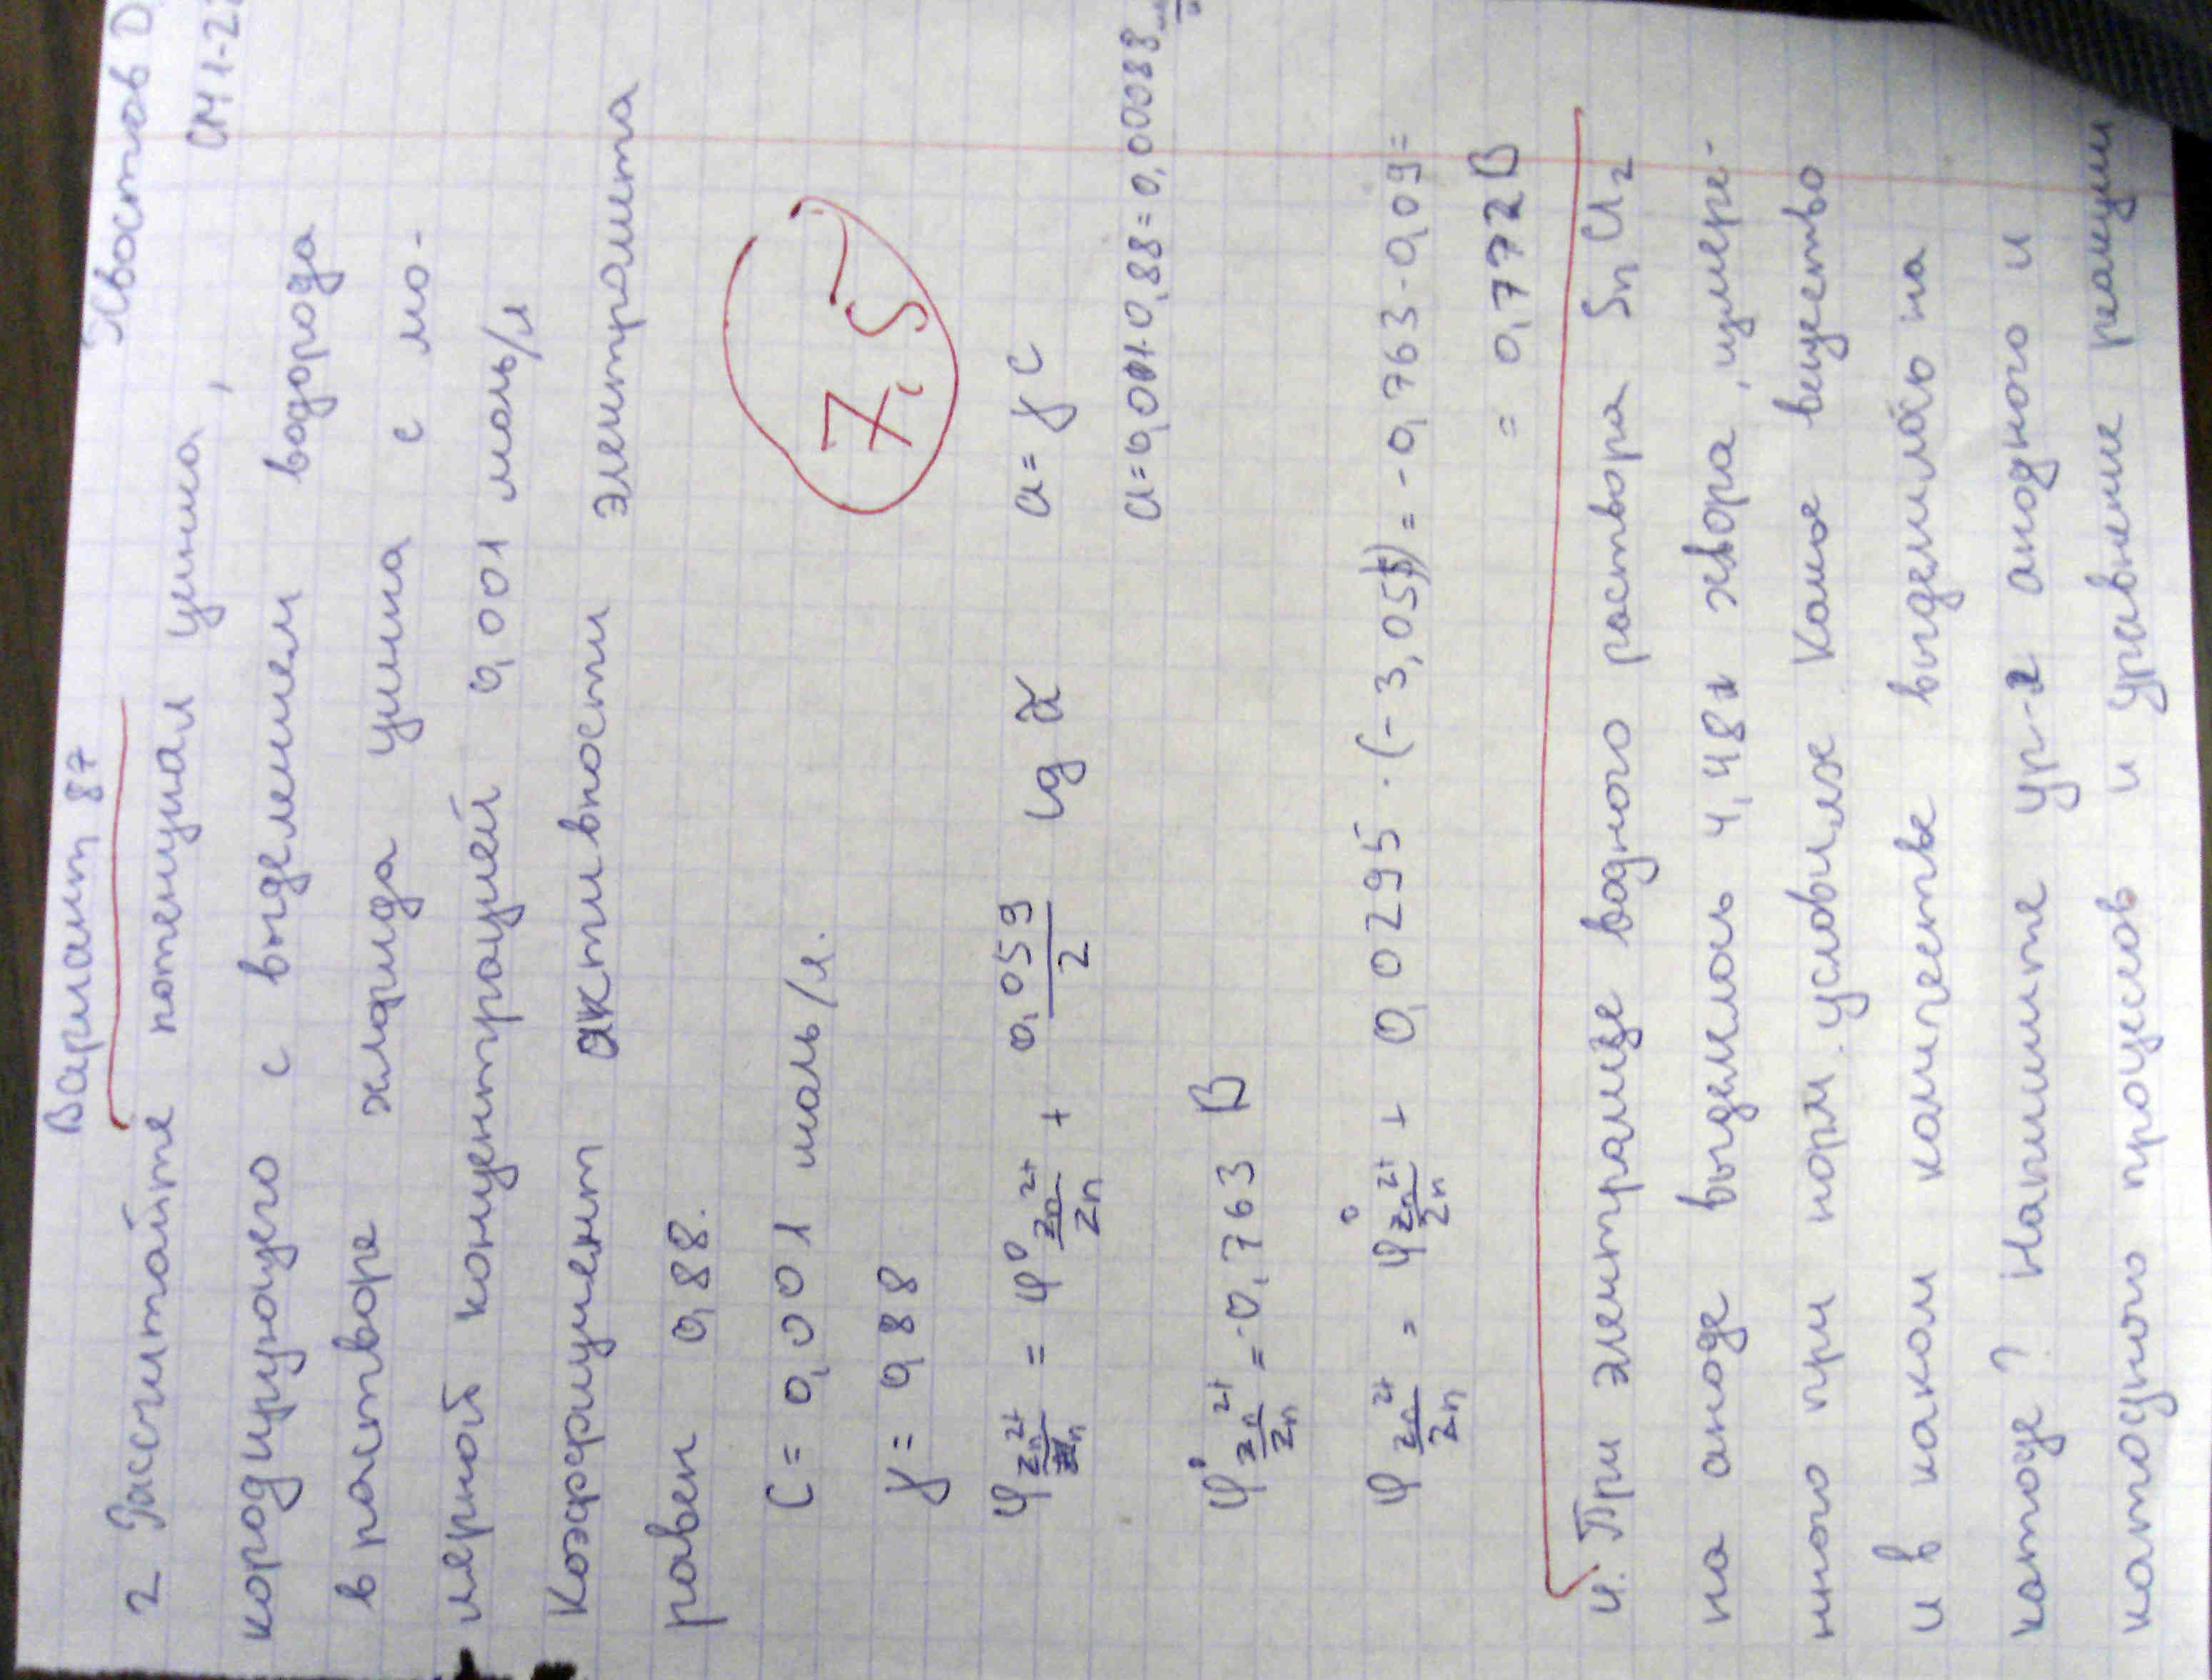 Вариант 87
Хвостов D
СМ1-22
2 Рассчитайте потенциал цинка,
кородирующего с выделением водорода
в растворе хлорида цинка с мо-
лярной концентрацией 0,001 моль/л
Коэффициент активности электролита
равен 0,88.
C = 0,001 моль/л.
γ = 0,88
7,5
φ Zn²⁺/Zn = φ⁰ Zn²⁺/Zn + 0,059/2 lg a
a = γ C
a = 0,001·0,88 = 0,00088
φ⁰ Zn²⁺/Zn = -0,763 В
φ Zn²⁺/Zn = φ⁰ Zn²⁺/Zn + 0,0295 · (-3,055) = -0,763-0,09=
= 0,772 В
4. При электролизе водного раствора SnCl₂
на аноде выделилось 4,48л хлора, измере-
нного при норм. условиях Какое вещество
и в каком количестве выделилось на
катоде? Напишите ур-я анодного и
катодного процессов и уравнение реакции